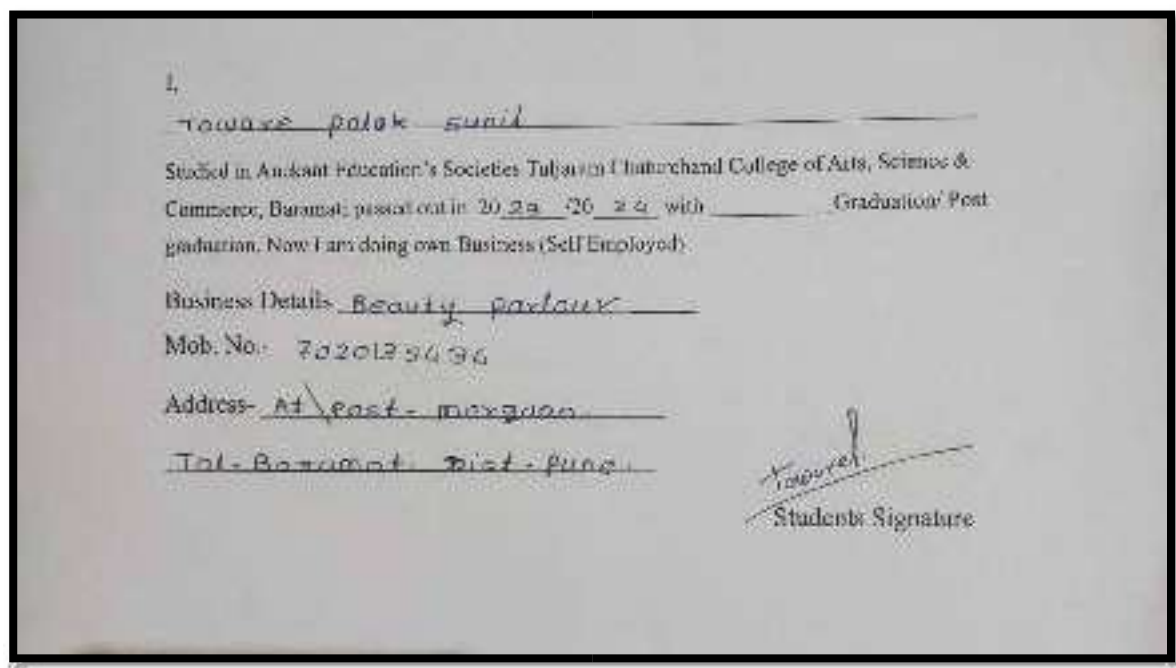 I,
Toware palak sunil
Studied in Anekant Education's Societies Tuljaram Chaturchand College of Arts, Science &
Commerce, Baramati passed out in 20 /20 24 with ________ Graduation/ Post
graduation. Now I am doing own Business (Self Employed)
Business Details Beauty parlour
Mob. No.-
Address- At\post- morgaon
Tal-Baramati Dist-pune.
Students Signature